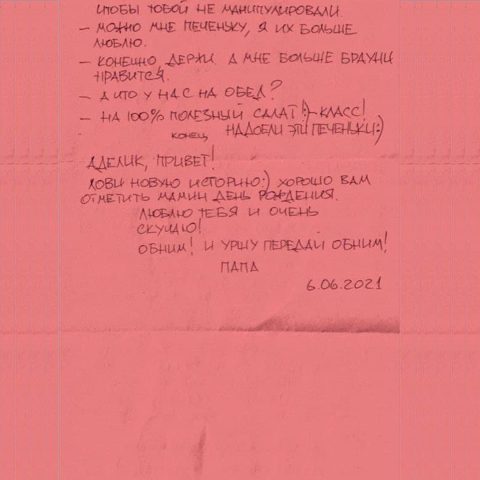 чтобы тобой не манипулировали.
– можно мне печеньку, я их больше
люблю.
– конечно, держи. а мне больше брауни
нравится.
– а что у нас на обед?
– на 100% полезный салат :) – класс!
конец. надоели эти печеньки :)
Аделик, привет!
лови новую историю :) хорошо вам
отметить мамин день рождения.
люблю тебя и очень
скучаю!
обним! и Уршу передай обним!
папа
6.06.2021